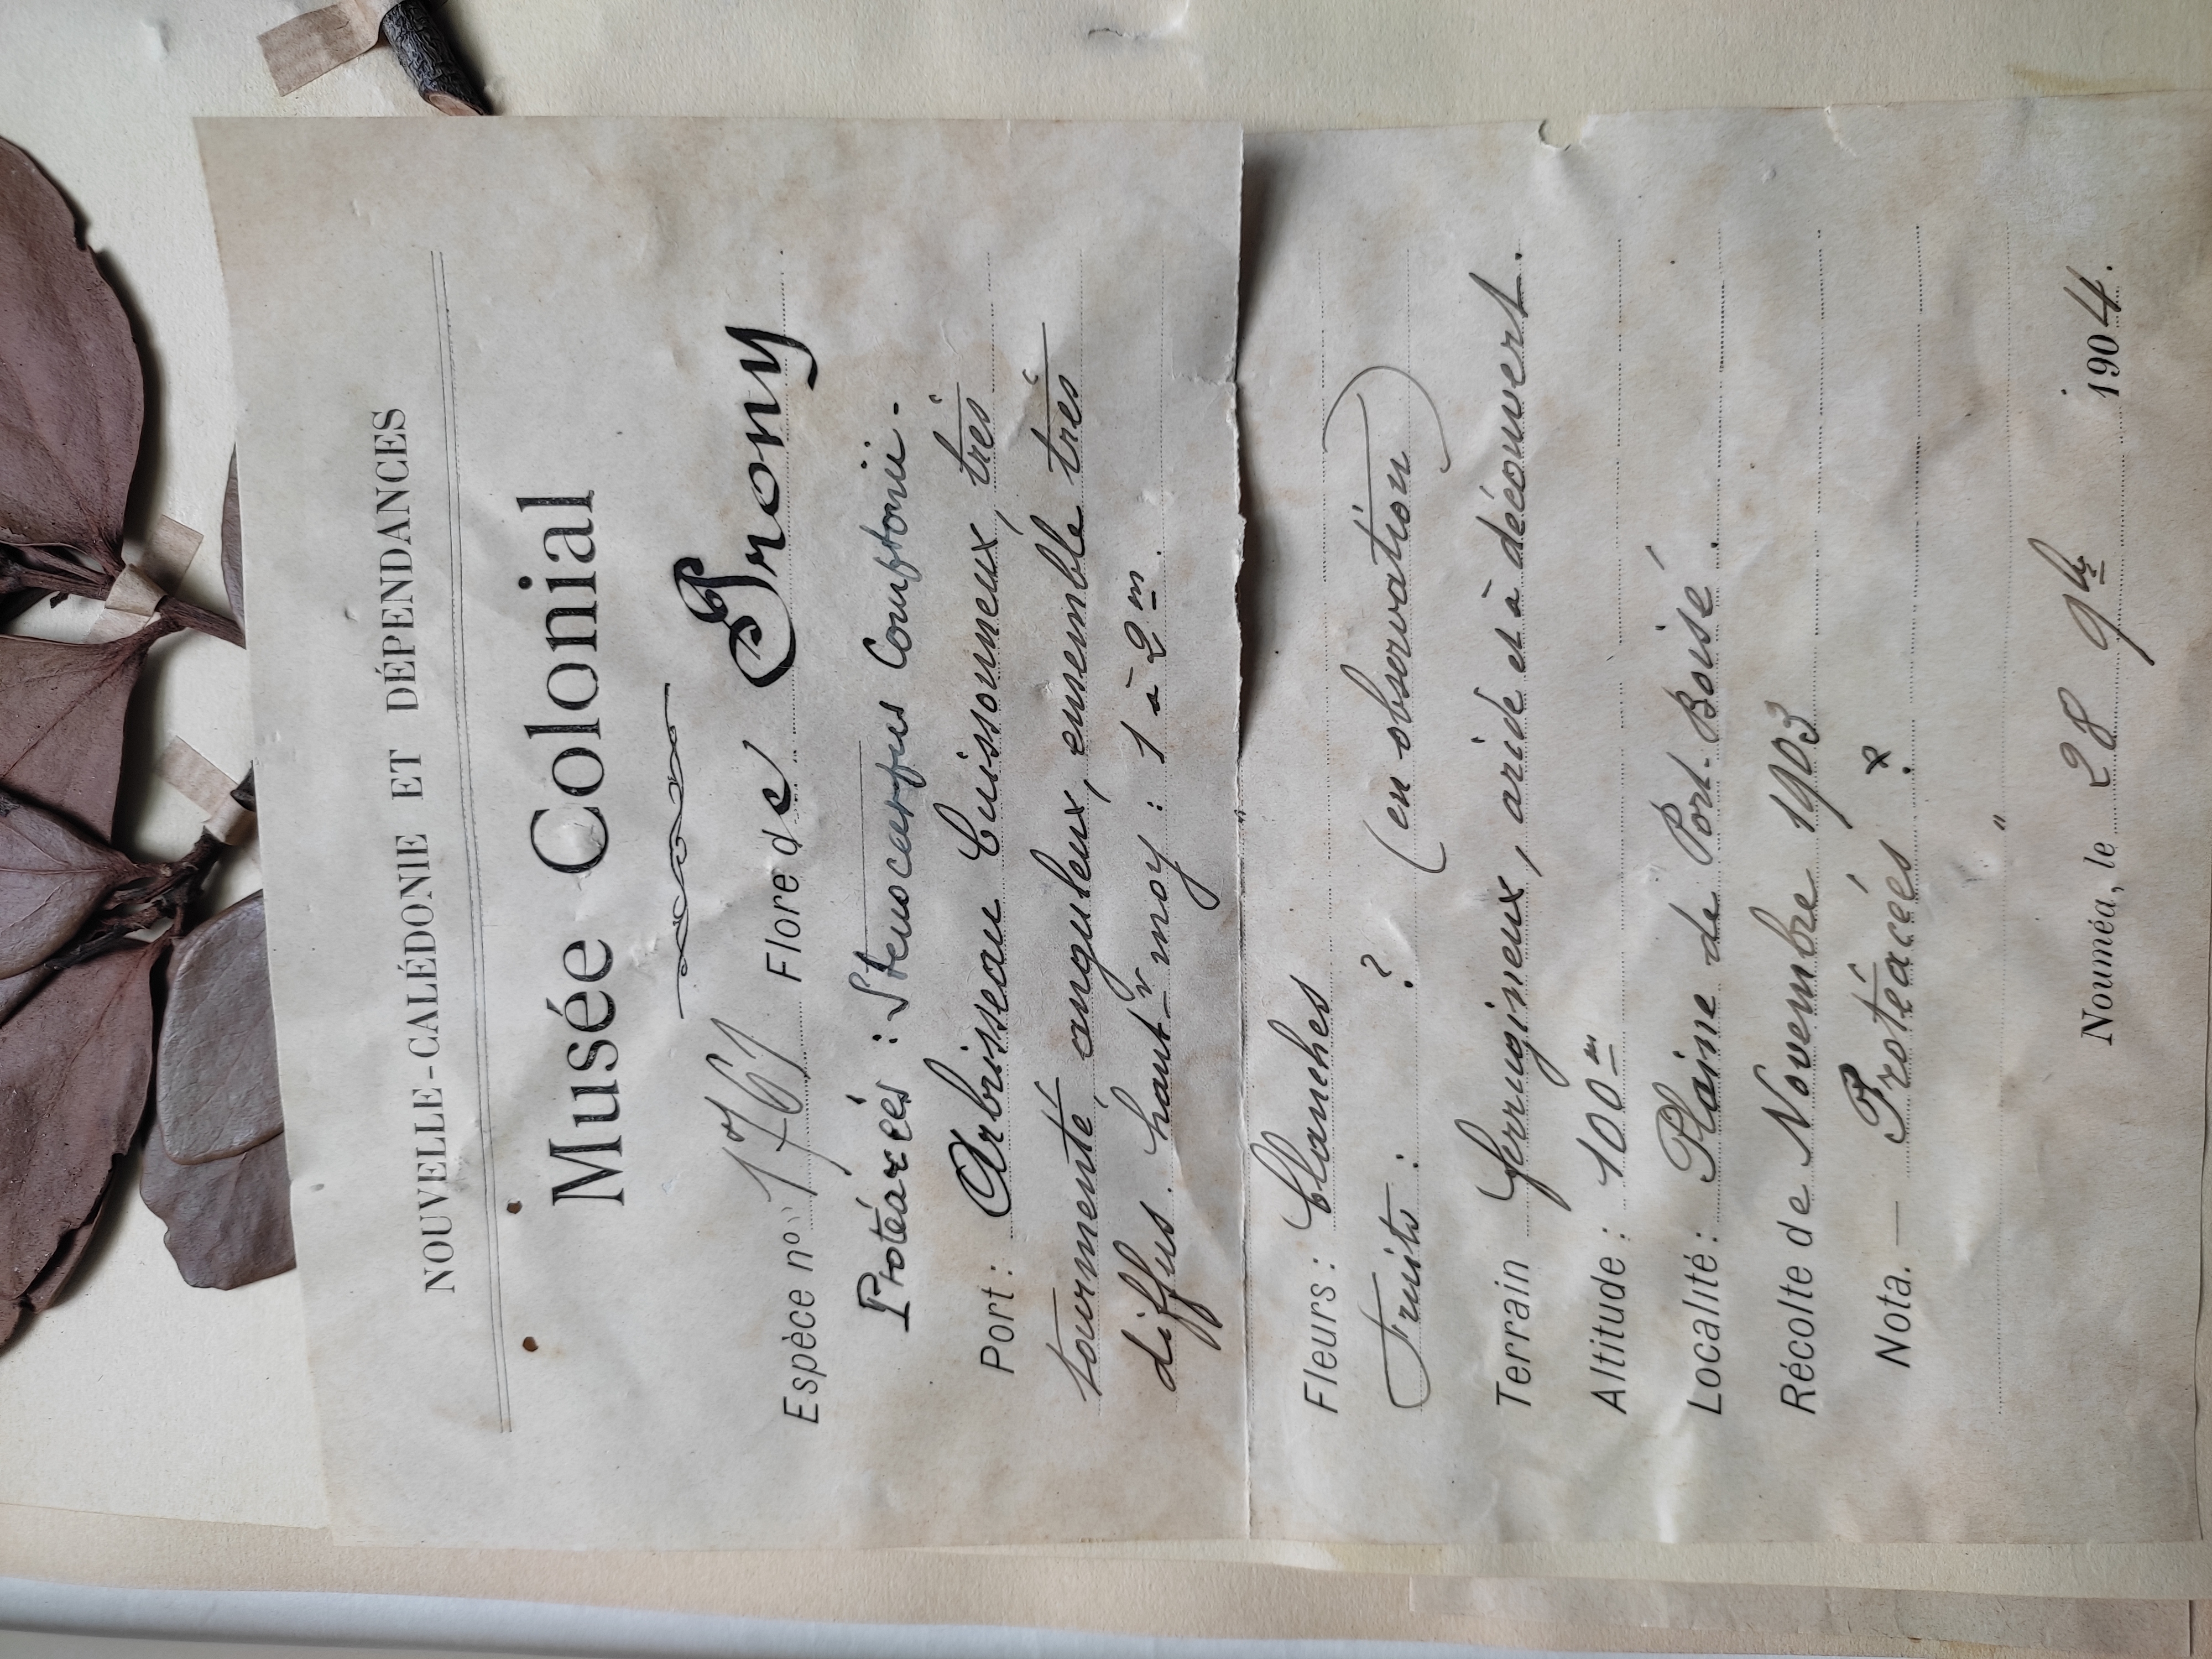 NOUVELLE-CALÉDONIE ET DÉPENDANCES
Musée Colonial
Espèce nº 1761 Flore de Prony
Protéacées : Stenocarpus Comptonii.
Port : Arbrisseau buissonneux, très
tourmenté, anguleux, ensemble très
diffus. haut^r moy : 1 à 2 m.
"
Fleurs : blanches
Fruits : ? (en observation)
Terrain ferrugineux, aride et à découvert.
Altitude : 100 m
Localité : Plaine de Port-Boisé.
Récolte de Novembre 1903
Nota. — Protéacées x.
"
Nouméa, le 28 9bre 1904.